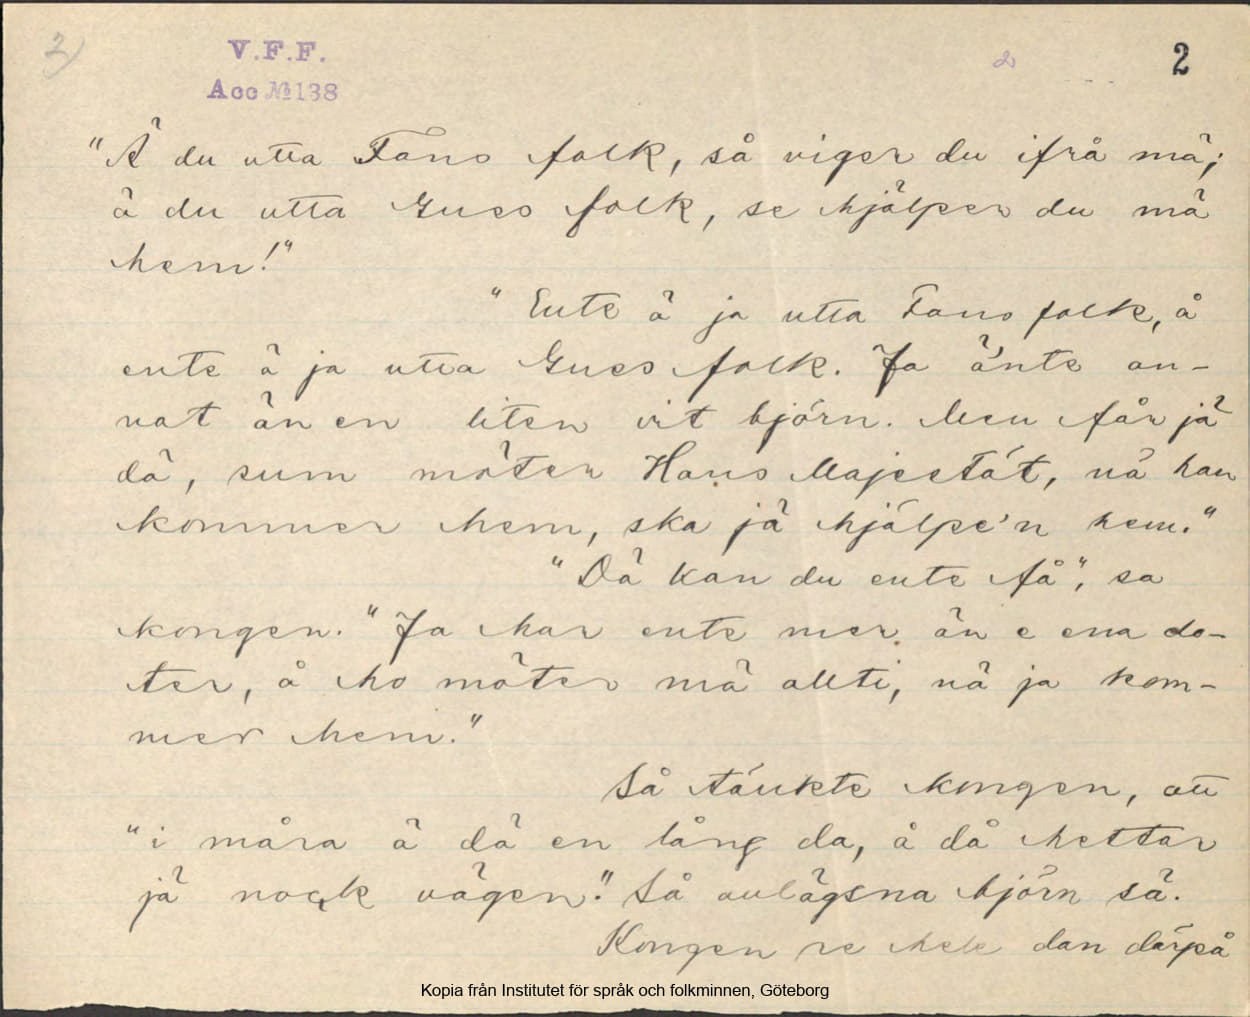 2)
V.F.F.
Acc № 138
2
2
"Ä du utta Fans folk, så viger du ifrå mä;
ä du utta Gues folk, se hjälper du mä
hem!"
"Ente ä ja utta Fans folk, å
ente ä ja utta Gues folk. Ja änte an-
nat än en liten vit björn. Men får jä
dä, sum möter Hans Majestät, nä han
kommer hem, ska jä hjälpe'n hem."
"Dä kan du ente få", sa
kongen. "Ja har ente mer än e ena do-
ter, å ho möter mä allti, nä ja kom-
mer hem."
Så tänkte kongen, att
"i måra ä dä en lång da, å då hettar
jä nock vägen." Så avlägsna björn sä.
Kongen re hele dan därpå
Kopia från Institutet för språk och folkminnen, Göteborg